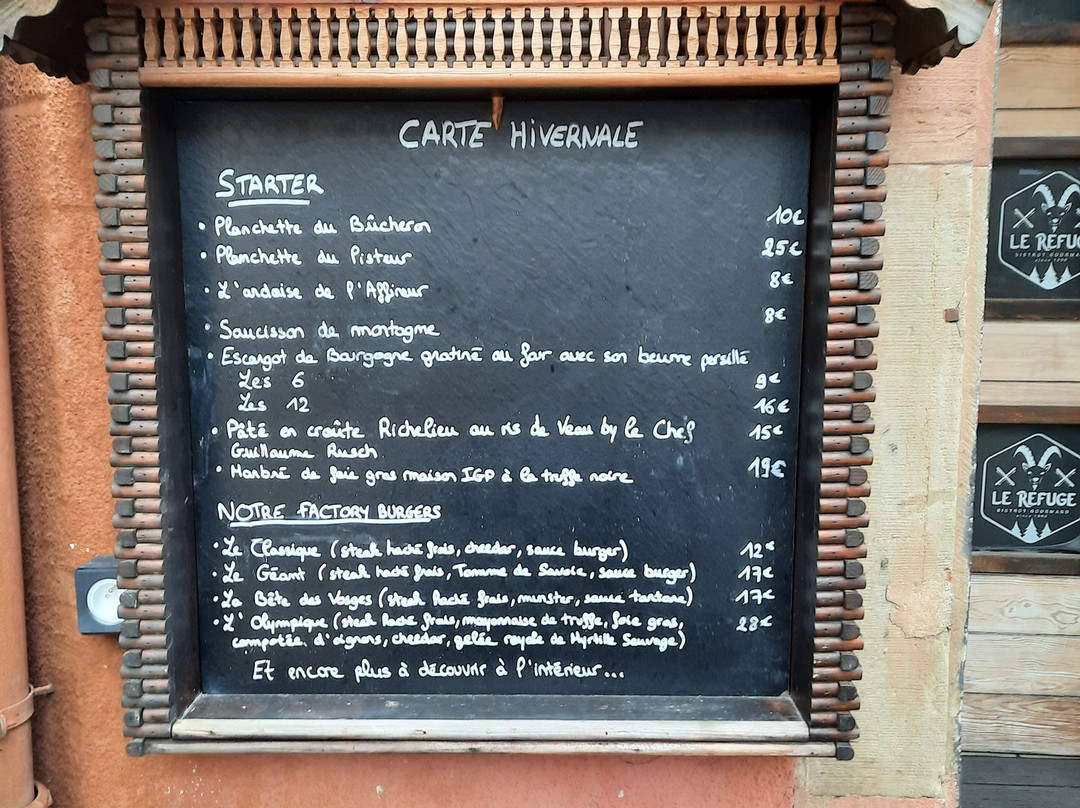 CARTE HIVERNALE
STARTER
• Planchette du Bûcheron 10€
• Planchette du Pisteur 25€
• L'ardoise de l'Affineur 8€
• Saucisson de montagne 8€
• Escargot de Bourgogne gratiné au four avec son beurre persillé
Les 6 9€
Les 12 16€
• Pâté en croûte Richelieu au ris de Veau by le Chef 15€
Guillaume Rusch
• Marbré de foie gras maison IGP à la truffe noire 19€
NOTRE FACTORY BURGERS
• Le Classique (steak haché frais, cheedar, sauce burger) 12€
• Le Géant (steak haché frais, Tomme de Savoie, sauce burger) 17€
• La Bête des Vosges (steak haché frais, munster, sauce tartare) 17€
• L'Olympique (steak haché frais, mayonnaise de truffe, foie gras, 28€
compotée d'oignons, cheedar, gelée royale de Myrtille Sauvage)
Et encore plus à découvrir à l'intérieur...
LE REFUGE
BISTROT GOURMAND
LE REFUGE
BISTROT GOURMAND